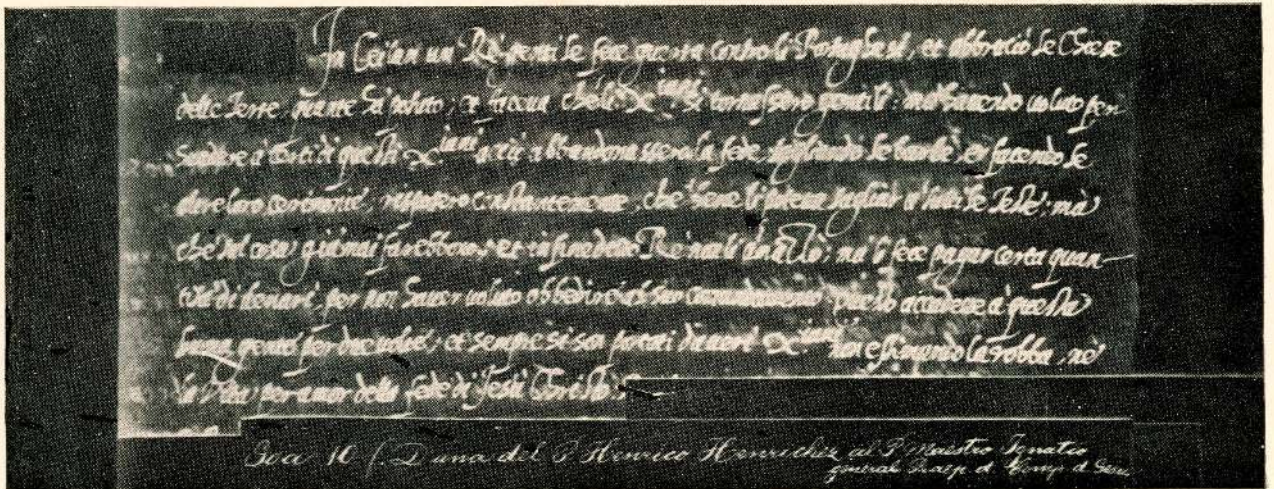 In Ceilan un Rè gentile fece guerra contro li Portughesi, et abbrució le Chiese
delle Terre, quante hà poluto; et faceua che li X.iani si tornassero gentili: mà hauendo uoluto per-
suadere à di questi X.iani acciò abbandonassero la fede, tagliando le barbe, et facendo le
altre loro cerimonie, risposero constantemente, che bene li poteua tagliar à tutti le Teste; mà
che tal cosa giamai farebbono; et in fine detto Rè non li mà li fece pagar certa quan-
tità di denari, per non hauer uoluto obbedire al suo comandamento questo accadete à questa
buona gente per due uolte, et sempre si son portati da ueri X.iani non estimando la robba, nè
la Vita per amor della fede di Jesù Christo.
Goa 10 una del P Henrico Henrichez al P Maestro Ignatio
general Praep. d. Comp. d Gesu